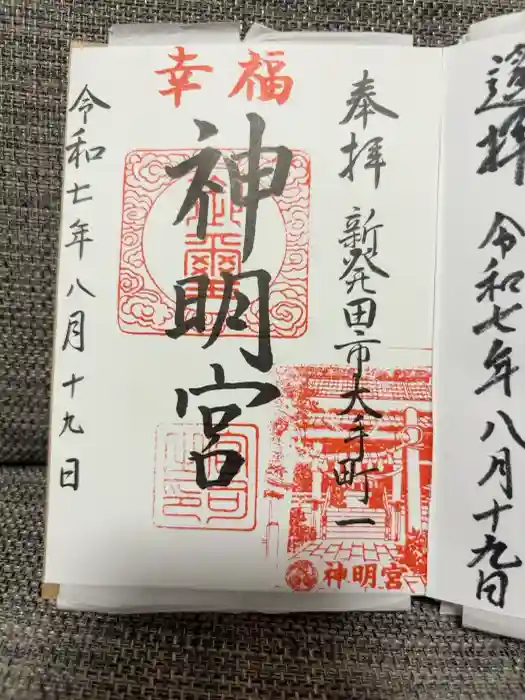 遙拝
令和七年八月十九日
幸福
奉拝
新発田市大手町一
神明宮
令和七年八月十九日
神明宮